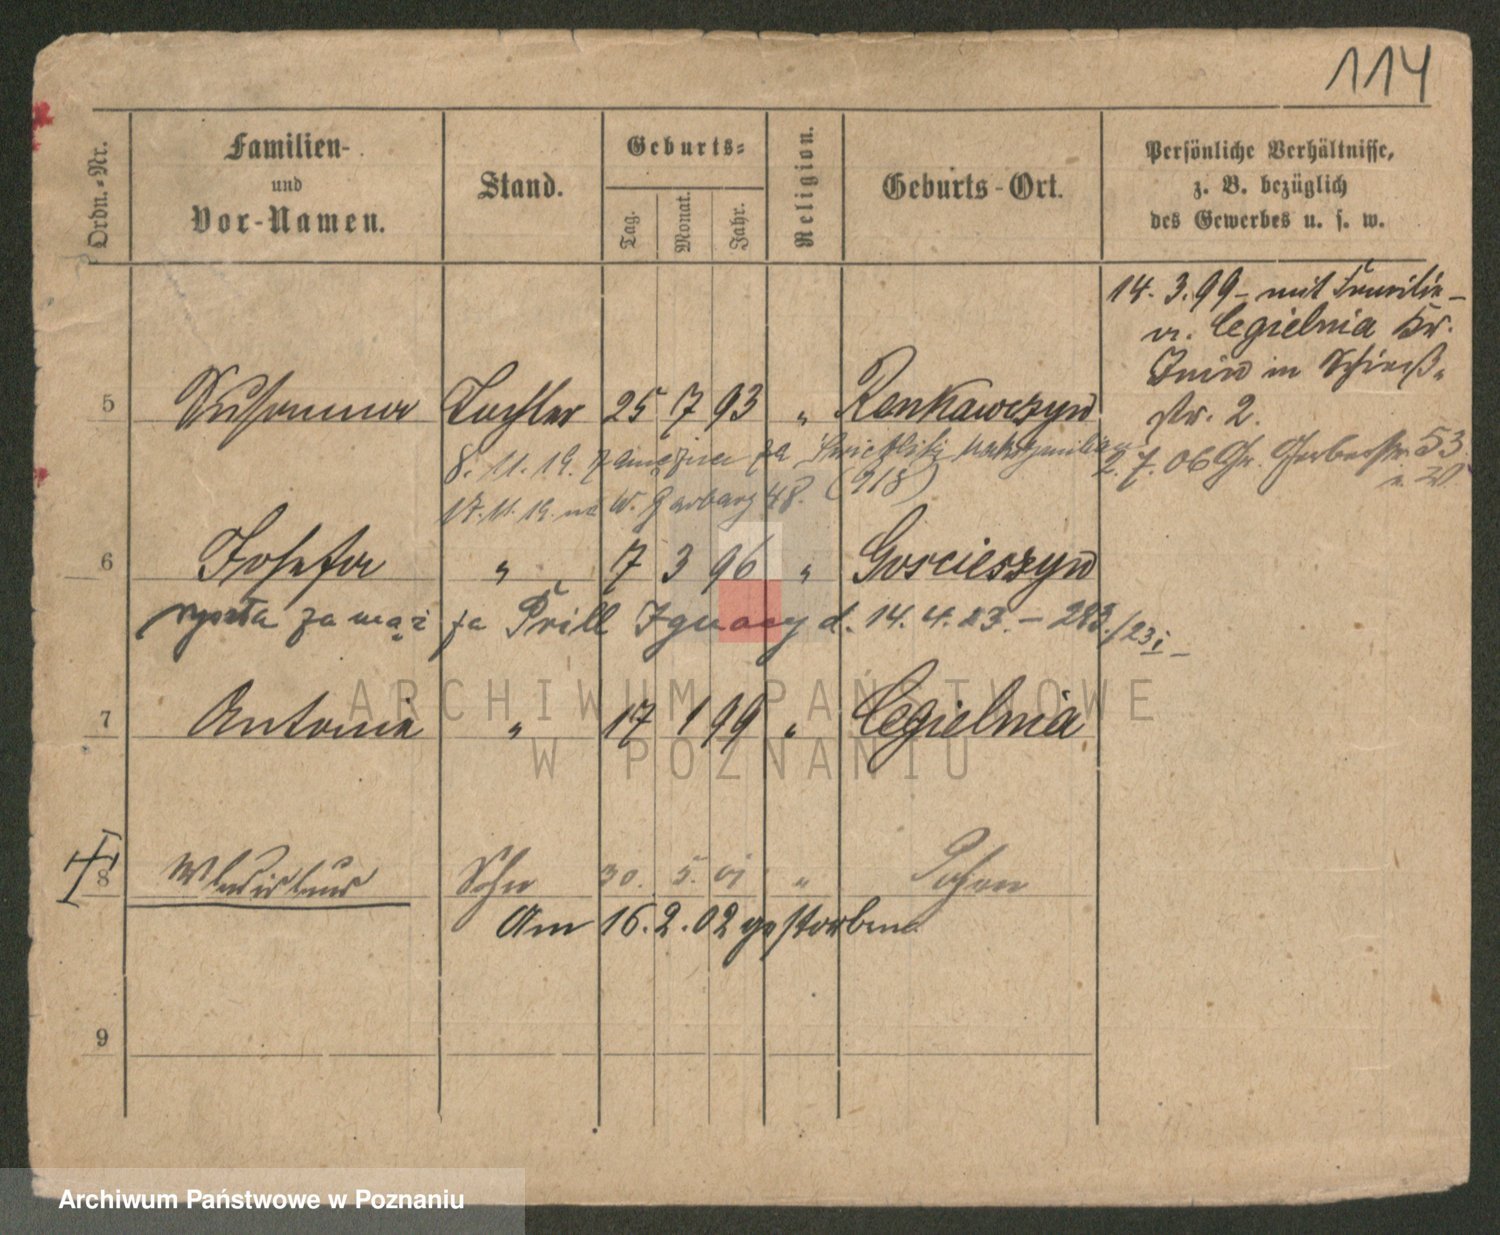 114
Ordn.-Nr.
Familien-
und
Vor-Namen.
Stand.
Geburts-
Tag.
Monat.
Jahr.
Religion.
Geburts-Ort.
Persönliche Verhältnisse,
z. B. bezüglich
des Gewerbes u. s. w.
14. 3. 99 - mit Familie -
v. Cegielnia Kr.
Znin in Schieß-
str. 2.
5 Susanna Tochter 25 7 93 " Renkawczyn
8. 11. 19. zamężna za
2. 7. 06 Gr. Gerberstr. 53
17. 11. 19. na W. Garbary 48. (918)
6 Josefa " 7 3 96 " Goscieszyn
wyszła za mąż za Prill Ignacy d. 14. 4. 23. - 283/23
7 Antonie " 17 1 99 " Cegielnia
8 Wladislaus Sohn 30. 5. 01 " Posen
Am 16. 2. 02 gestorben
9
ARCHIWUM PAŃSTWOWE
W POZNANIU
Archiwum Państwowe w Poznaniu